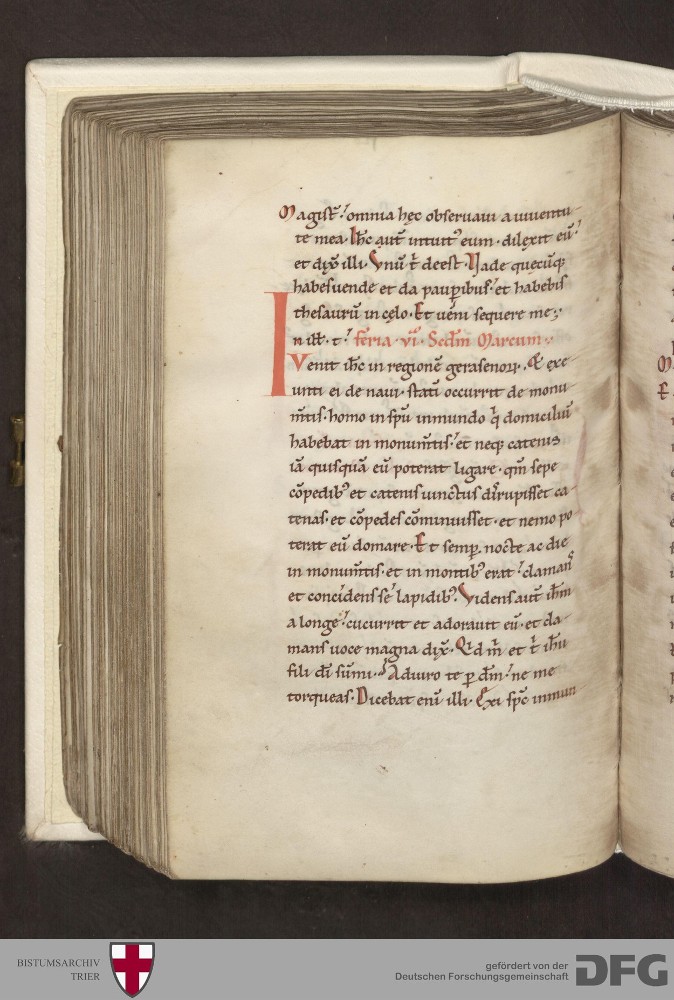 Magist̄ omnia hęc obseruaui a iuuentu
te mea. Ih̄c aut̄ intuit᷒ eum. dilexit eū.
et dix̄ illi. Vnū t̄ deest. Vade quecūq;
habes uende et da paup̱ibus. et habebis
thesaurū in cęlo. Et ueni sequere me.
n ill̄. t. feria. vi. Scd̄m Marcum.
IVenit ih̄c in regionē gerasenoꝝ. Et exe
unti ei de naui. statī occurrit de monu
m̄tis. homo in sp̄u inmundo q̄ domiciliū
habebat in monum̄tis. et neq; catenis
iā quisquā eū poterat ligare. qm̄ sepe
cōpedib᷒ et catenis uinctus dirupisset ca
tenas. et cōpedes cōminuisset. et nemo po
terat eū domare. Et semp̱ nocte ac die
in monum̄tis. et in montib᷒ erat. claman̄s
et concidens se lapidib᷒. Videns aut̄ ih̄m
a longe. cucurrit et adorauit eū. et cla
mans uoce magna dix̄. Qd̄ m̄ et t̄ ih̄u
fili dī sūmi. Adiuro te p̱ dm̄. ne me
torqueas. Dicebat enī illi. Exi sp̄c inmun
BISTUMSARCHIV
TRIER
gefördert von der
Deutschen Forschungsgemeinschaft
DFG